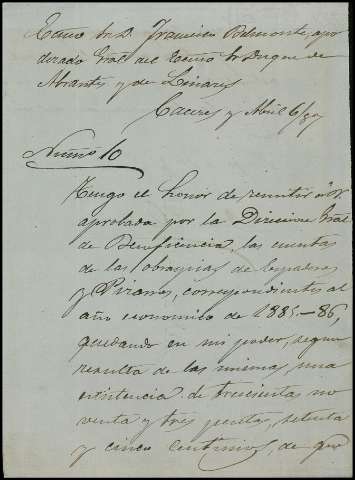 Excmo Sr D. Francisco Belmonte, apo
derado Gral del Excmo Sr Duque de
Abrantes y de Linares
Caceres y Abril 6/87
Numo 10
Tengo el honor de remitir á V.
aprobada por la Direccion Gral
de Beneficencia, las cuentas
de las obraspias de
y Pizarros, correspondientes al
año economico de 1885-86,
quedando en mi poder, segun
resulta de las mismas, una
existencia de trescientas no
venta y tres pesetas, setenta
y cinco centimos, de que